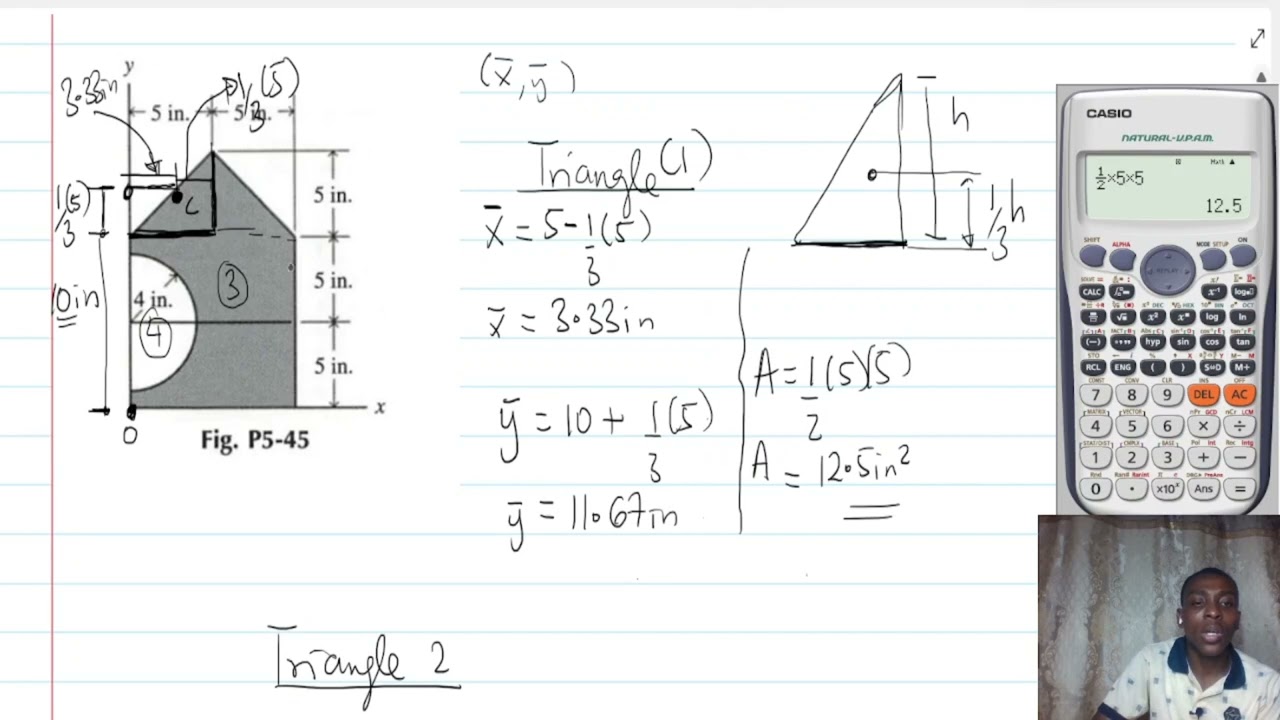 y
3.33in
1/3(5)
5 in.
5 in.
1/3(5)
C
5 in.
10in
4 in.
3
4
5 in.
5 in.
x
O
Fig. P5-45
(x̄, ȳ)
Triangle (1)
x̄ = 5 - 1/3(5)
x̄ = 3.33in
ȳ = 10 + 1/3(5)
ȳ = 11.67in
h
1/3 h
A = 1/2(5)(5)
A = 12.5in²
Triangle 2
CASIO
NATURAL-V.P.A.M.
Math
1/2×5×5
12.5
SHIFT
ALPHA
MODE SETUP
ON
REPLAY
CALC
x⁻¹
log
ln
(−)
hyp
sin
cos
tan
RCL
ENG
(
)
S⇔D
M+
7
8
9
DEL
AC
4
5
6
×
÷
1
2
3
+
−
0
.
×10ˣ
Ans
=